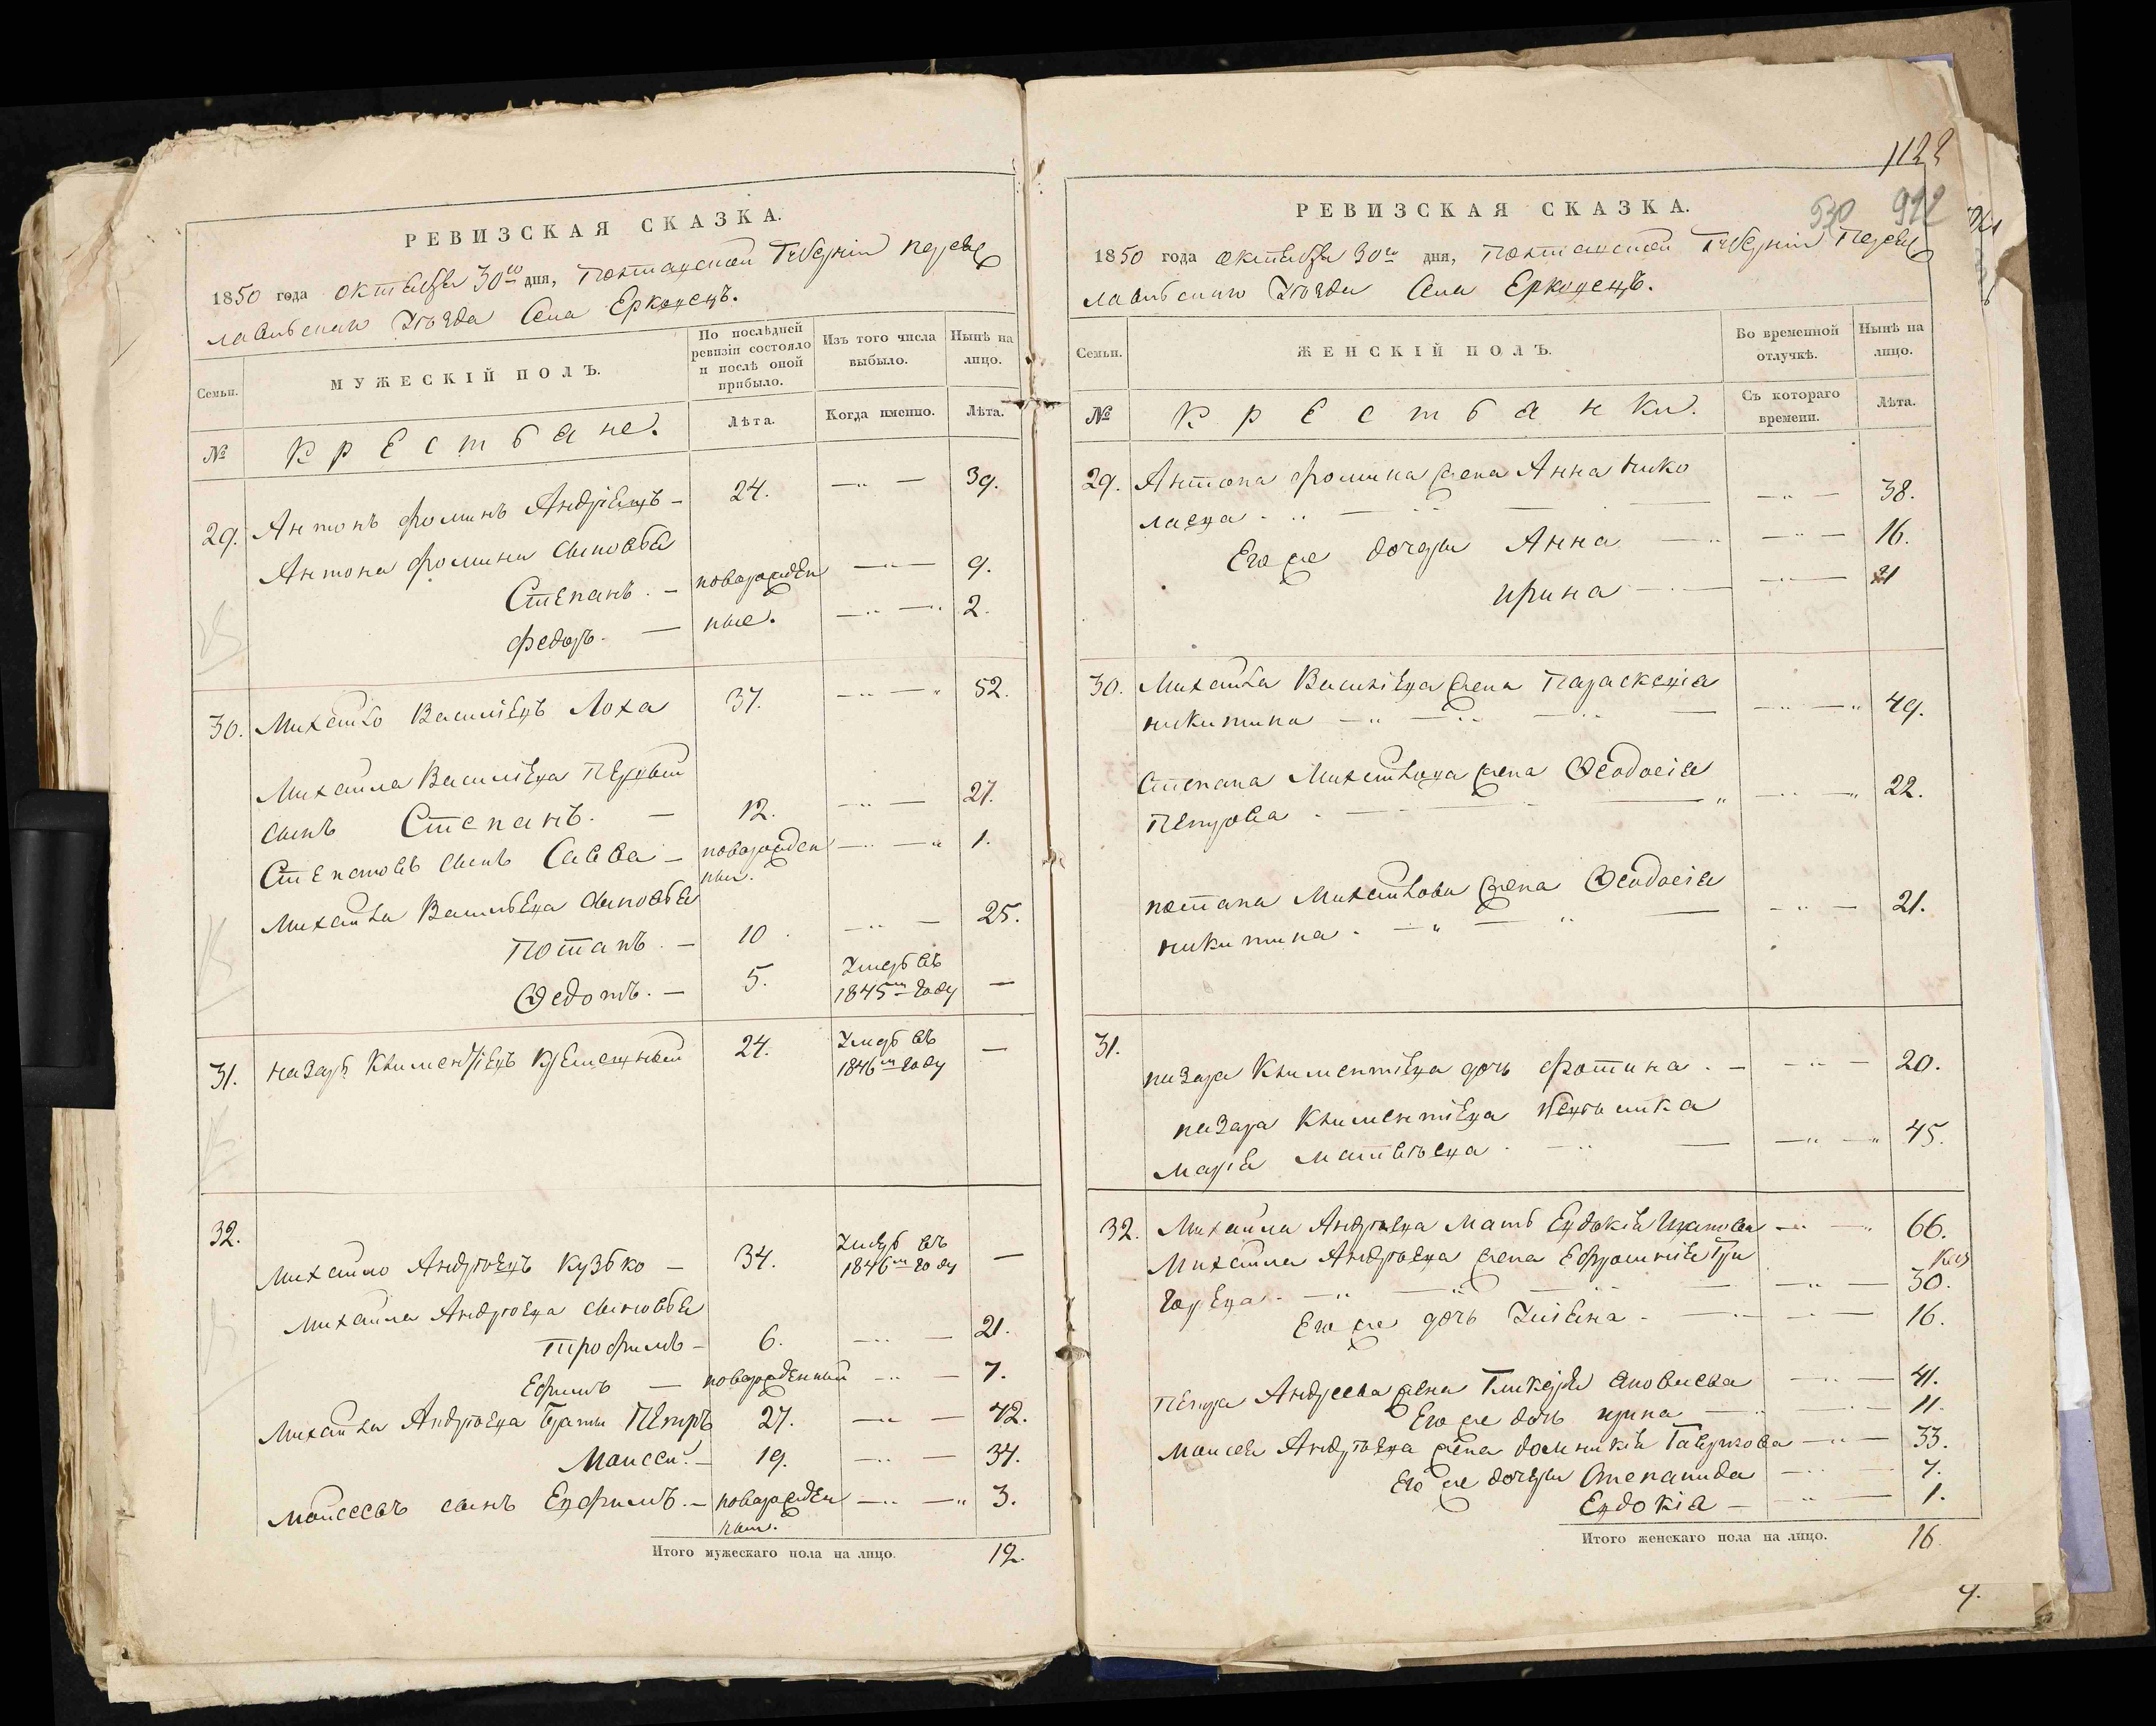 РЕВИЗСКАЯ СКАЗКА.
1850 года октября 30го дня, Полтавской Губерніи Переяс
лавского Уезда Села Ерковецъ.
Семьи.
МУЖЕСКІЙ ПОЛЪ.
По послѣдней ревизіи состояло и послѣ оной прибыло.
Изъ того числа выбыло.
Нынѣ на лицо.
№
Крестьяне.
Лѣта.
Когда именно.
Лѣта.
29. Антонъ Фоминъ Андріецъ — 24. — 39.
Антона Фомина сыновья
Степанъ. — новорожден — 9.
Федоръ. — ные. — 2.
30. Михайло Василіевъ Лоха 37. — 52.
Михайла Василіева первый
сынъ Степанъ. — 12. — 27.
Степановъ сынъ Савва — новорожден — 1.
ный.
Михайла Васильева сыновья
Потапъ. — 10. — 25.
Ѳедотъ. — 5. Умеръ въ 1845м году —
31. Назаръ Климентіевъ 24. Умеръ въ 1846м году —
32.
Михайло Андрѣевъ Кузько — 34. Умеръ въ 1846м году —
Михайла Андрѣева сыновья
Трофимъ — 6. — 21.
Ефимъ — новорожденный — 7.
Михайла Андрѣева братья Петръ 27. — 42.
Моисей. — 19. — 34.
Моисеевъ сынъ Евфимъ. — новорожден — 3.
ный.
Итого мужескаго пола на лицо. 12.
1122
530 922
РЕВИЗСКАЯ СКАЗКА.
1850 года октября 30го дня, Полтавской Губерніи Переяс
лавского Уезда Села Ерковецъ.
Семьи.
ЖЕНСКІЙ ПОЛЪ.
Во временной отлучкѣ.
Нынѣ на лицо.
№
Крестьянки.
Съ котораго времени.
Лѣта.
29. Антона Фомина жена Анна Нико
лаева. — 38.
Его же дочери Анна — 16.
Ирина —
30. Михайла Василіева жена Параскевія
Никитина — 49.
Степана Михайлова жена Ѳеодосія
Петрова. — 22.
Потапа Михайлова жена Ѳеодосія
Никитина. — 21.
31.
Назара Климентіева дочь Фотина. — 20.
Назара Климентіева невѣстка
Марія Матвѣева. — 45.
32. Михайла Андрѣева мать Евдокія Иванова — 66.
Михайла Андрѣева жена Ефросинія Гри
горьева. — 30.
Его же дочь Уліяна. — 16.
Петра Андреева жена Гликерія Яковлева — 41.
Его же дочь Ирина — 11.
Моисея Андрѣева жена Домникія Гаврилова — 33.
Его же дочери Степанида — 7.
Евдокія — 1.
Итого женскаго пола на лицо. 16.